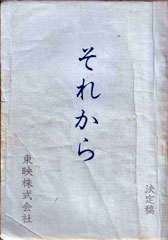 決定稿
それから
東映株式会社